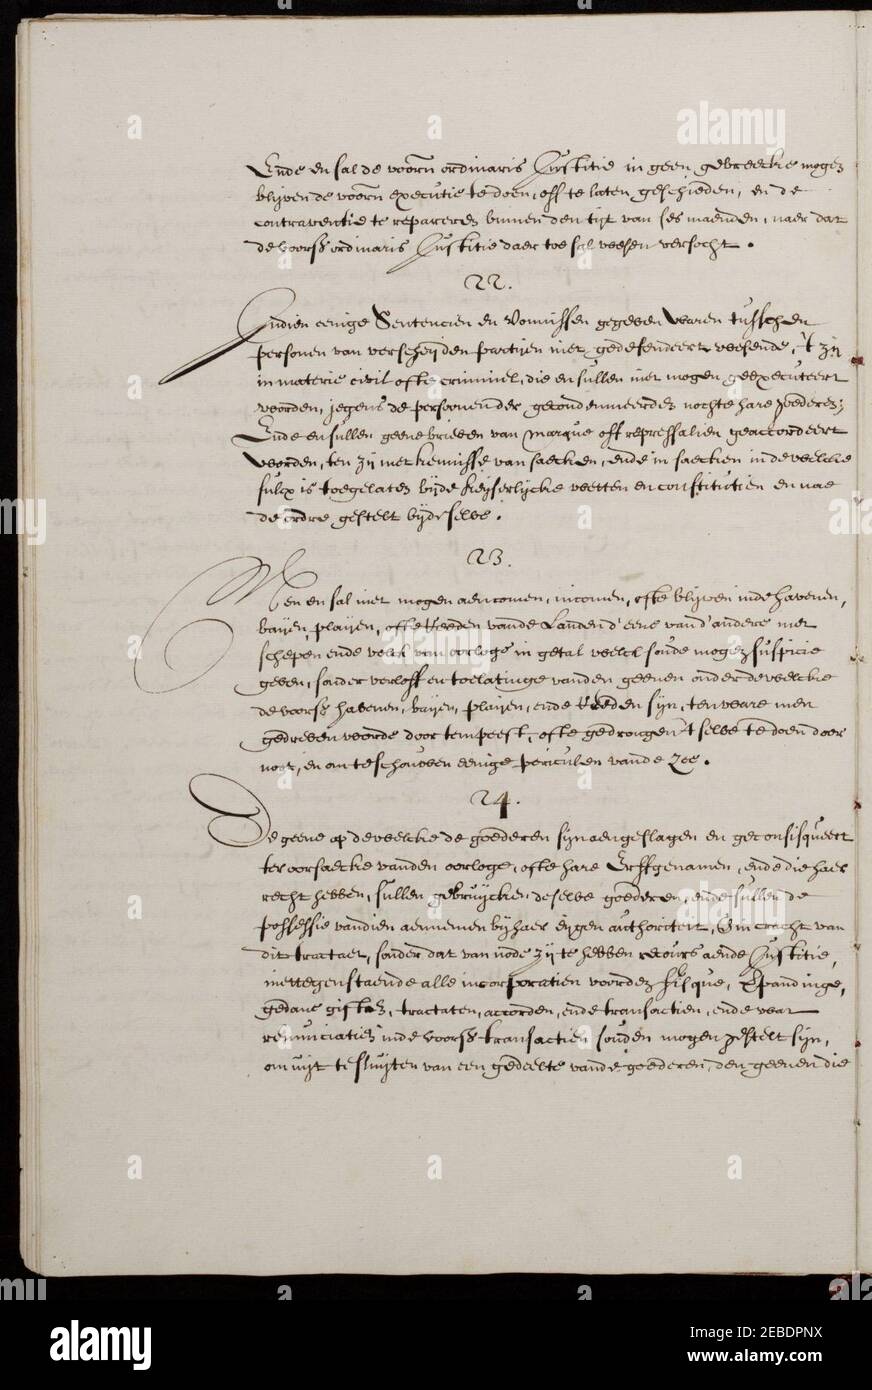 Ende en sal de voorn ordinaris Justitie in geen gebreecke mogen
blijven de voorn executie te doen, off te laten geschieden, en de
contraventie te repareren binnen den tijt van ses maenden, naer dat
de voorss ordinaris Justitie daer toe sal wesen versocht.
22.
Indien eenige Sentencien en Vonnissen gegeven waren tusschen
personen van verscheijden partijen niet gedefendeert wesende, 't zij
in materie civil ofte criminel, die en sullen niet mogen geexecuteert
worden, jegens de persoonen der gecondemneerden nochte hare goederen;
Ende en sullen geene brieven van Marque off repressalien geaccordeert
worden, ten zij met kennisse van saecken, ende in saecken inde welcke
sulcx is toegelaten bijde Keijserlijcke wetten en constitutien en nae
de ordre gestelt bij deselve.
23.
Men en sal niet mogen aencomen, incomen, ofte blijven inde havenen,
baijen, plaijen, ofte Reeden vande Landen d'eene vand' andere met
schepen ende volck van oorloge in getal welck soude mogen suspicie
geven, sonder verloff en toelatinge vanden geenen onder de welcke
de voorss havenen, baijen, plaijen, ende Reeden sijn, ten ware men
gedreven worde door tempeest, ofte gedrongen 't selve te doen door
noot, en om te schouwen eenige periculen vande Zee.
24.
De geene op de welcke de goederen sijn aengeslagen en geconfisqueert
ter oorsaecke vanden oorloge, ofte hare Erffgenamen, ende die haer
recht hebben, sullen gebruijcken deselve goederen, ende sullen de
possessie van dien aennemen bij haer eijgen authoriteit, in cracht van
dit tractaet, sonder dat van node zij te hebben recours aende Justitie,
niettegenstaende alle incorporatien worden fisque, Epandinge,
gedane giften, tractaten, accorden, ende transactien, ende wat
renunciatien inde voorss transactien souden mogen gestelt sijn,
om uijt te sluijten van een gedeelte vande goederen, den geenen die
alamy
Image ID: 2EBDPNX
www.alamy.com